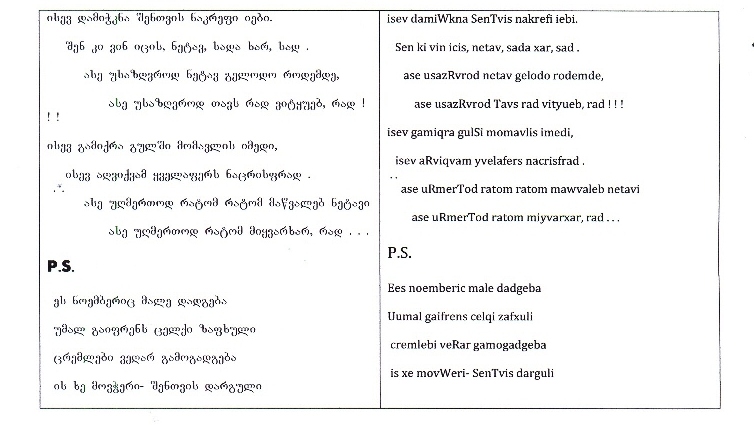 ისევ დამიჭკნა შენთვის ნაკრეფი იები.
შენ კი ვინ იცის, ნეტავ, სადა ხარ, სად .
ასე უსაზღვროდ ნეტავ გელოდო როდემდე,
ასე უსაზღვროდ თავს რად ვიტყუებ, რად !
! !
ისევ გამიქრა გულში მომავლის იმედი,
ისევ აღვიქვამ ყველაფერს ნაცრისფრად .
ასე უღმერთოდ რატომ რატომ მაწვალებ ნეტავი
ასე უღმერთოდ რატომ მიყვარხარ, რად . . .
P.S.
ეს ნოემბერიც მალე დადგება
უმალ გაიფრენს ცელქი ზაფხული
ცრემლები ვეღარ გამოგადგება
ის ხე მოვჭერი- შენთვის დარგული
isev damiWkna SenTvis nakrefi iebi.
Sen ki vin icis, netav, sada xar, sad .
ase usazRvrod netav gelodo rodemde,
ase usazRvrod Tavs rad vityueb, rad ! ! !
isev gamiqra gulSi momavlis imedi,
isev aRviqvam yvelafers nacrisfrad .
ase uRmerTod ratom ratom mawvaleb netavi
ase uRmerTod ratom miyvarxar, rad . . .
P.S.
Ees noemberic male dadgeba
Uumal gaifrens celqi zafxuli
cremlebi veRar gamogadgeba
is xe movWeri- SenTvis darguli